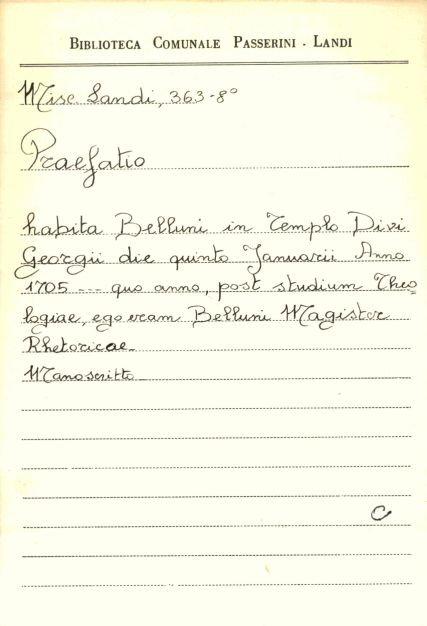 BIBLIOTECA COMUNALE PASSERINI - LANDI
Misc. Landi, 363-8°
Praefatio
habita Belluni in Templo Divi
Georgii die quinto Januarii Anno
1705 --- quo anno, post studium Theo_
logiae, ego eram Belluni Magister
Rhetoricae_
Manoscritto_
C